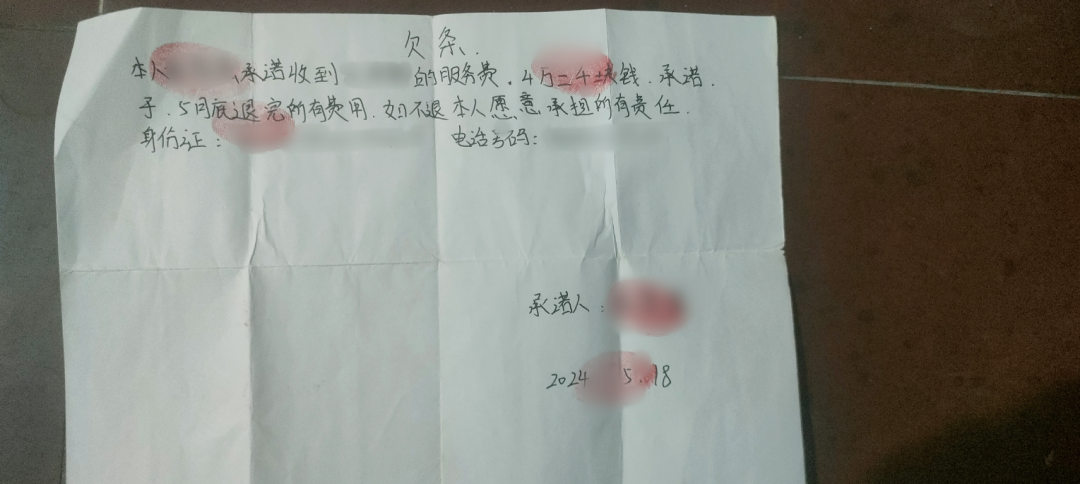 欠条.
本人 承诺收到 的服务费.4万二千块钱.承诺
于.5月底退完所有费用.如不退本人愿意承担所有责任.
身份证: 电话号码:
承诺人:
2024 5.18